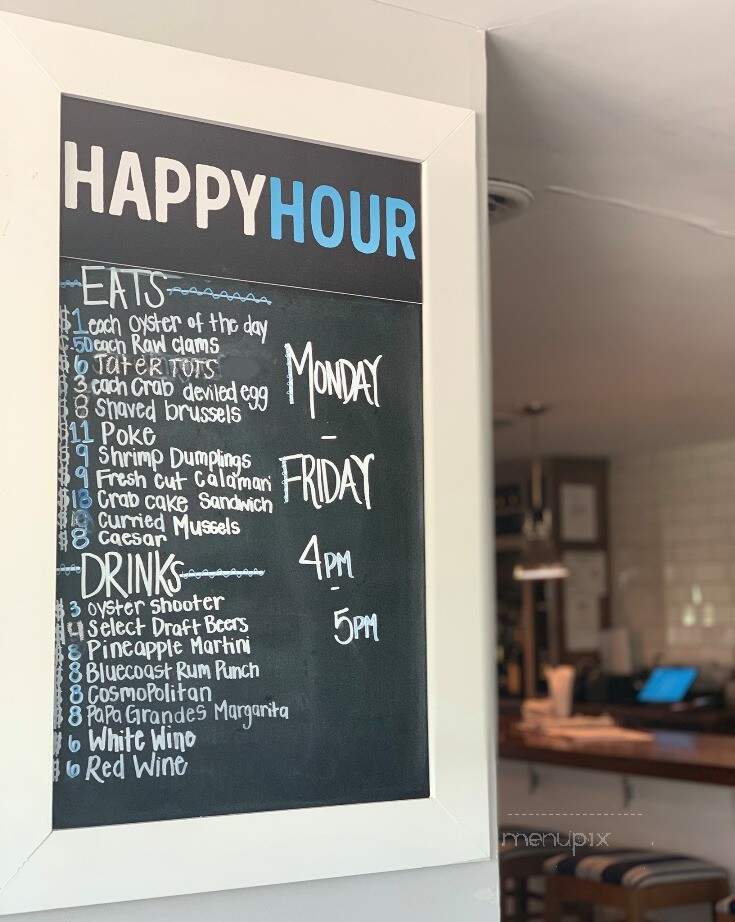 HAPPYHOUR
EATS
$1 each oyster of the day
.50 each Raw clams
$6 Tater TOTS
$3 each Crab deviled egg
$8 shaved brussels
$11 Poke
$9 Shrimp Dumplings
$9 Fresh Cut Calamari
$18 Crab cake Sandwich
Curried Mussels
$8 Caesar
DRINKS
$3 oyster shooter
$4 Select Draft Beers
$8 Pineapple Martini
$8 Bluecoast Rum Punch
$8 Cosmopolitan
$8 PaPa Grandes Margarita
$6 White Wine
$6 Red Wine
MONDAY
-
FRIDAY
4PM
-
5PM
menupix